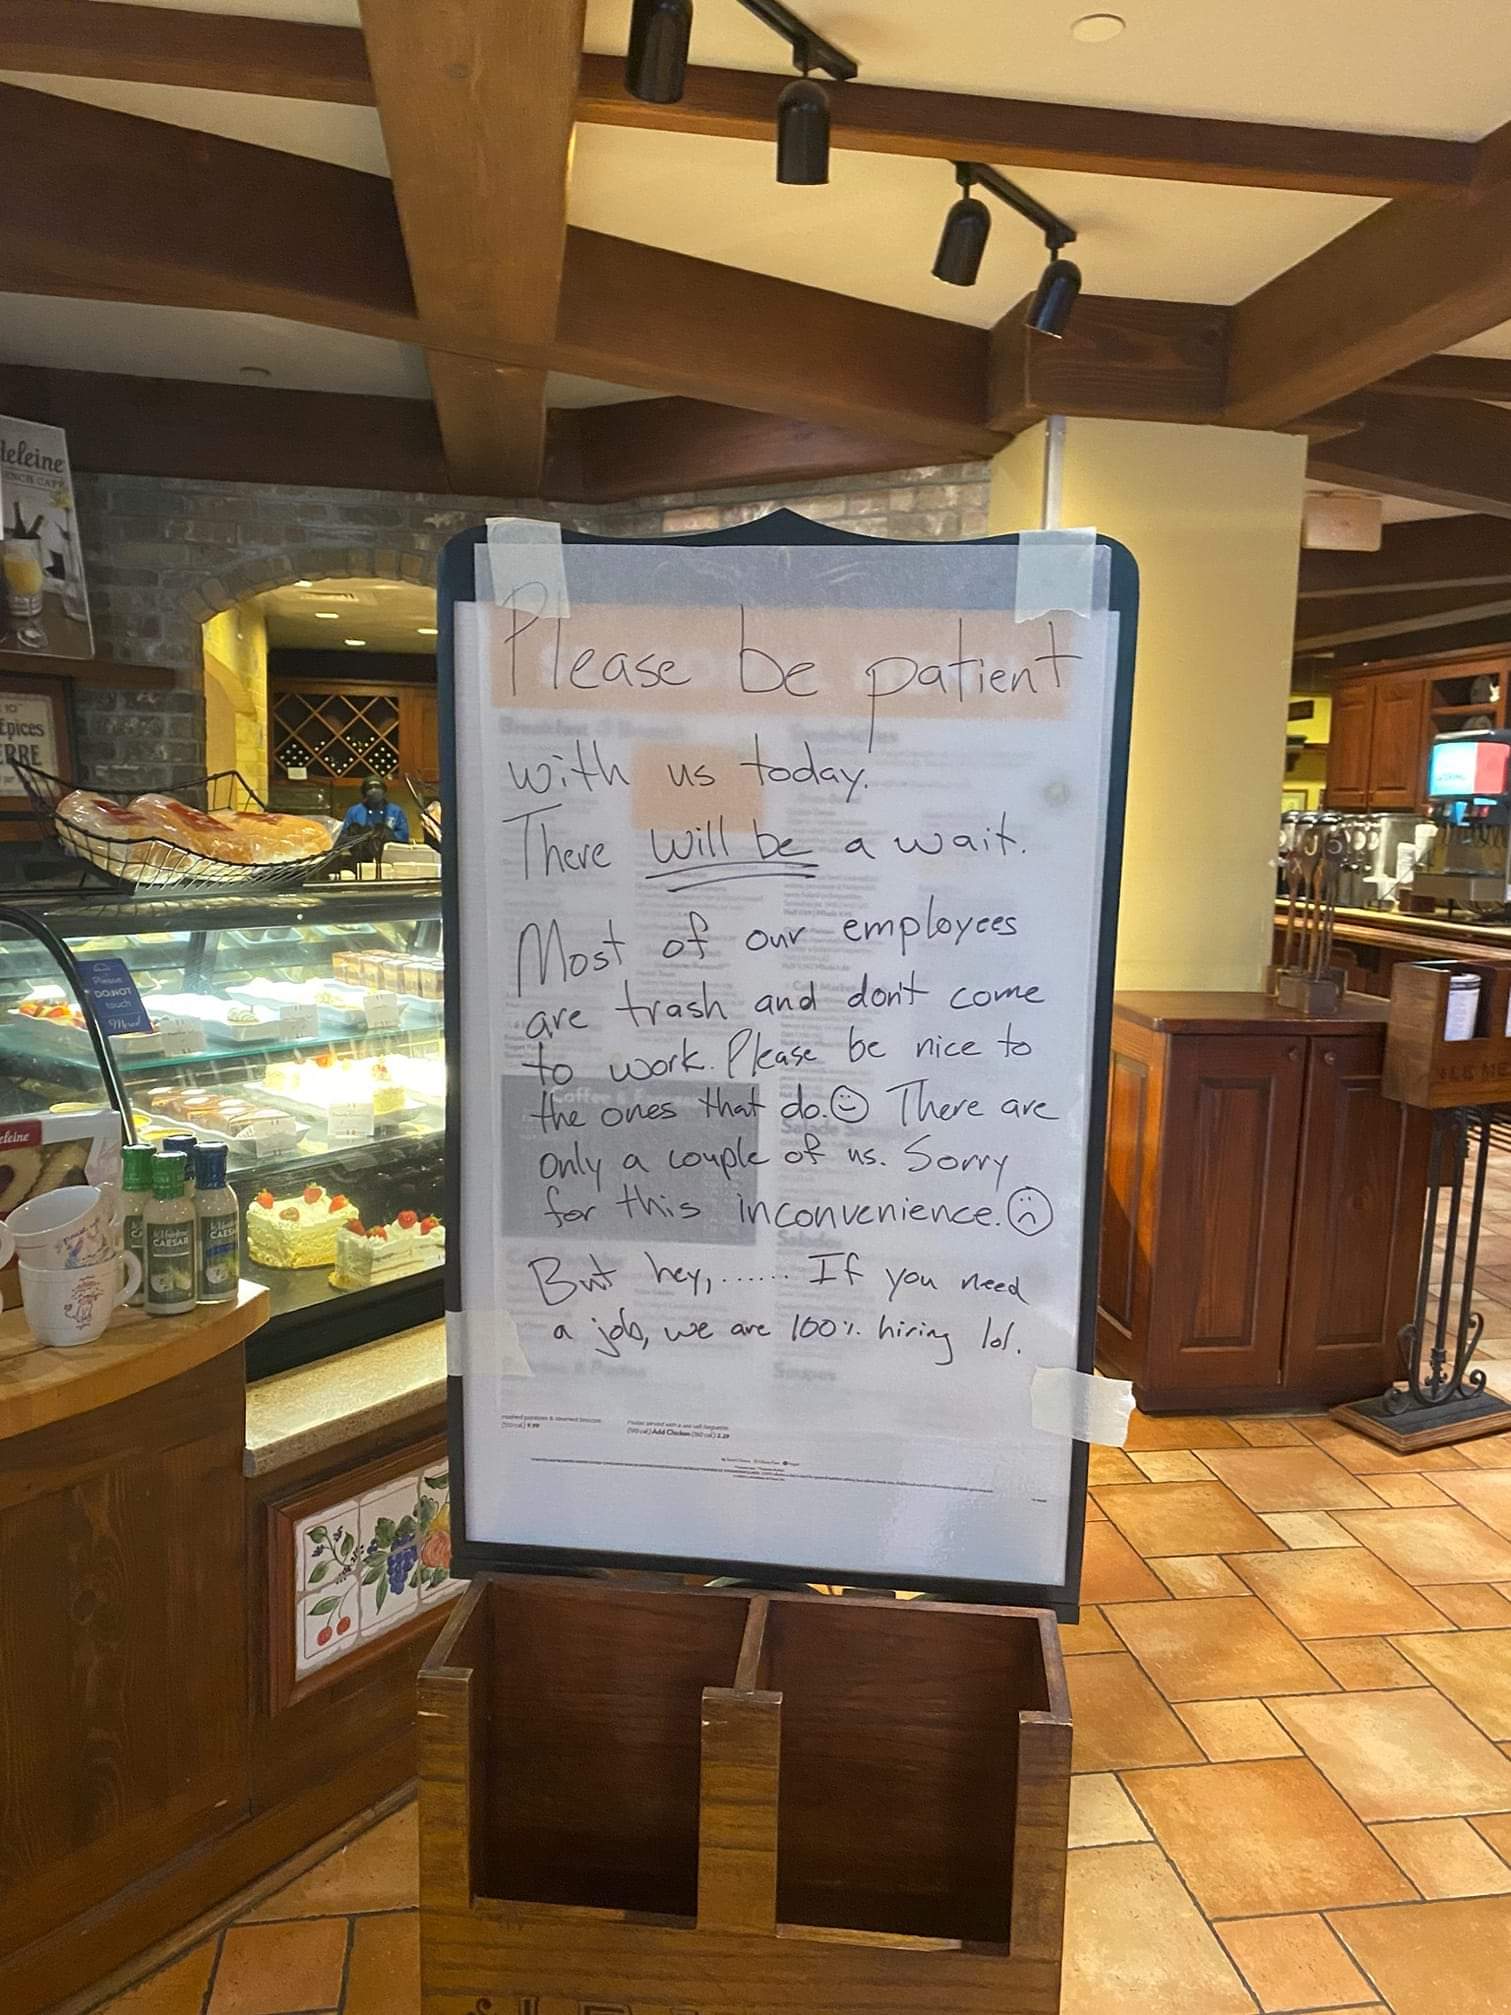 Please be patient
with us today.
There will be a wait.
Most of our employees
are trash and don't come
to work. Please be nice to
the ones that do. There are
only a couple of us. Sorry
for this inconvenience.
But hey,...... If you need
a job, we are 100% hiring lol.
Breakfast
Sandwiches
Coffee &
Salads
Soupes
mashed potatoes & steamed broccoli
Add Chicken
eleine
Epices
Please
DO NOT
touch
Merci!
eleine
CAESAR
CAESAR